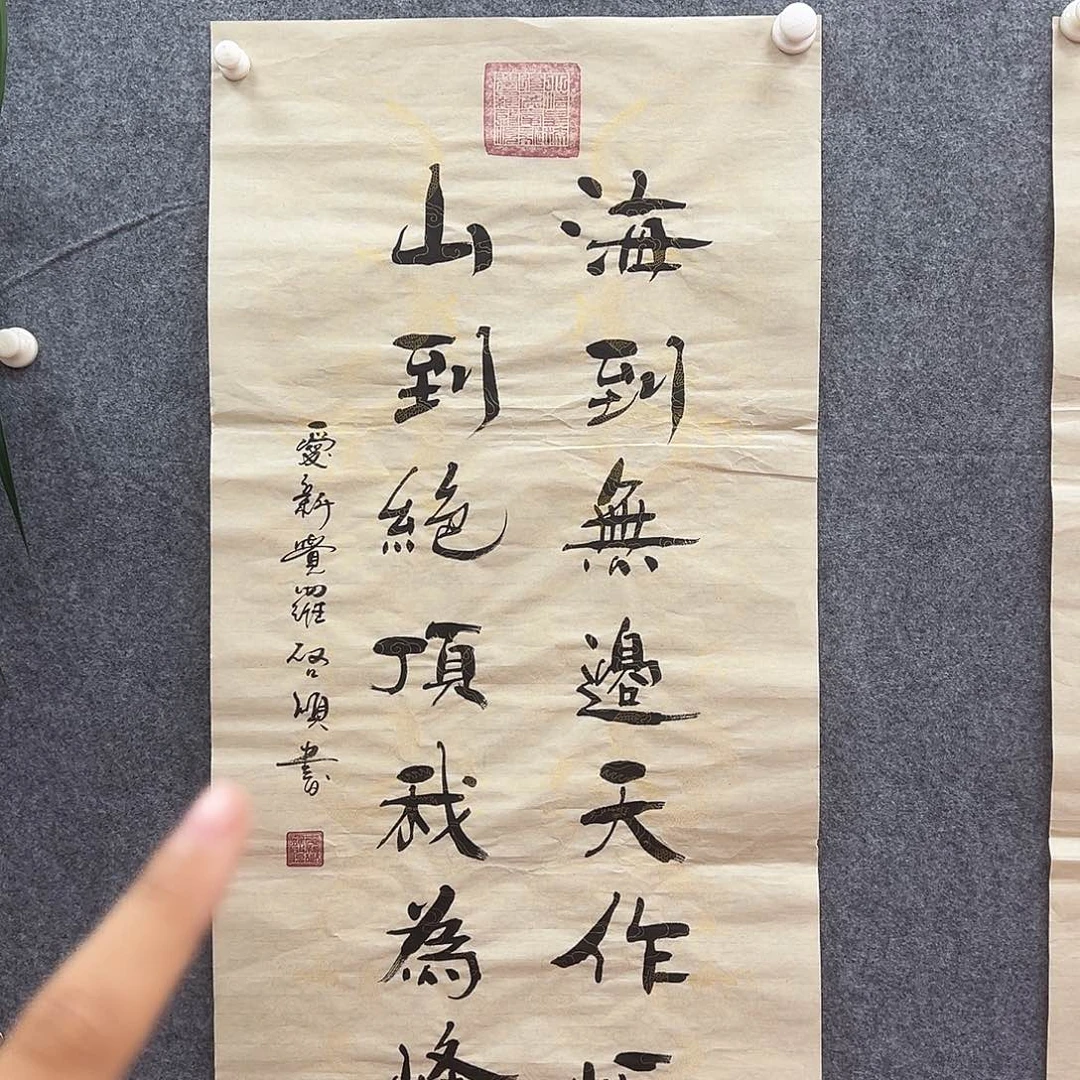 海到無邊天作
山到絕頂我為峰
愛新覺羅啓頌書